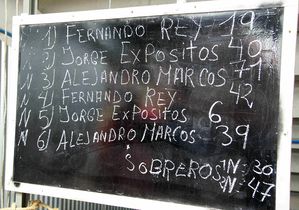 N 1) FERNANDO REY - 19
N 2) JORGE EXPOSITOS 40
N 3) ALEJANDRO MARCOS 71
N 4) FERNANDO REY 42
N 5) JORGE EXPOSITOS 6
N 6) ALEJANDRO MARCOS 39
SOBREROS 1N: 30
2N: 47